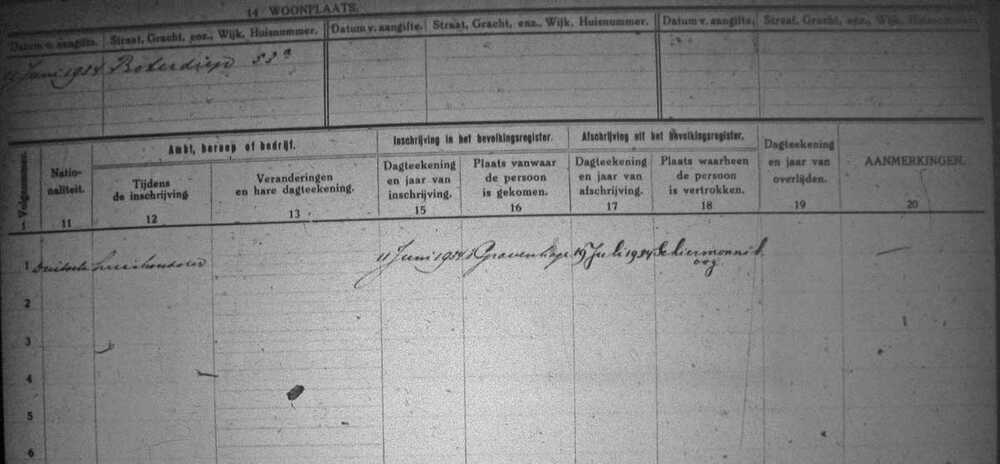 14 WOONPLAATS.
Datum v. aangifte. Straat, Gracht, enz., Wijk, Huisnummer. Datum v. aangifte. Straat, Gracht, enz., Wijk, Huisnummer. Datum v. aangifte. Straat, Gracht, enz., Wijk, Huisnummer.
11 Juni 1934 Boterdiep 53a
Volgnummer.
1
Natio-
naliteit.
11
Ambt, beroep of bedrijf.
Tijdens
de inschrijving
12
Veranderingen
en hare dagteekening.
13
Inschrijving in het bevolkingsregister.
Dagteekening
en jaar van
inschrijving.
15
Plaats vanwaar
de persoon
is gekomen.
16
Afschrijving uit het bevolkingsregister.
Dagteekening
en jaar van
afschrijving.
17
Plaats waarheen
de persoon
is vertrokken.
18
Dagteekening
en jaar van
overlijden.
19
AANMERKINGEN.
20
1 Duitsche 11 Juni 1934 's Gravenhage 19 Juli 1934 Schiermonnik
oog
2
3
4
5
6